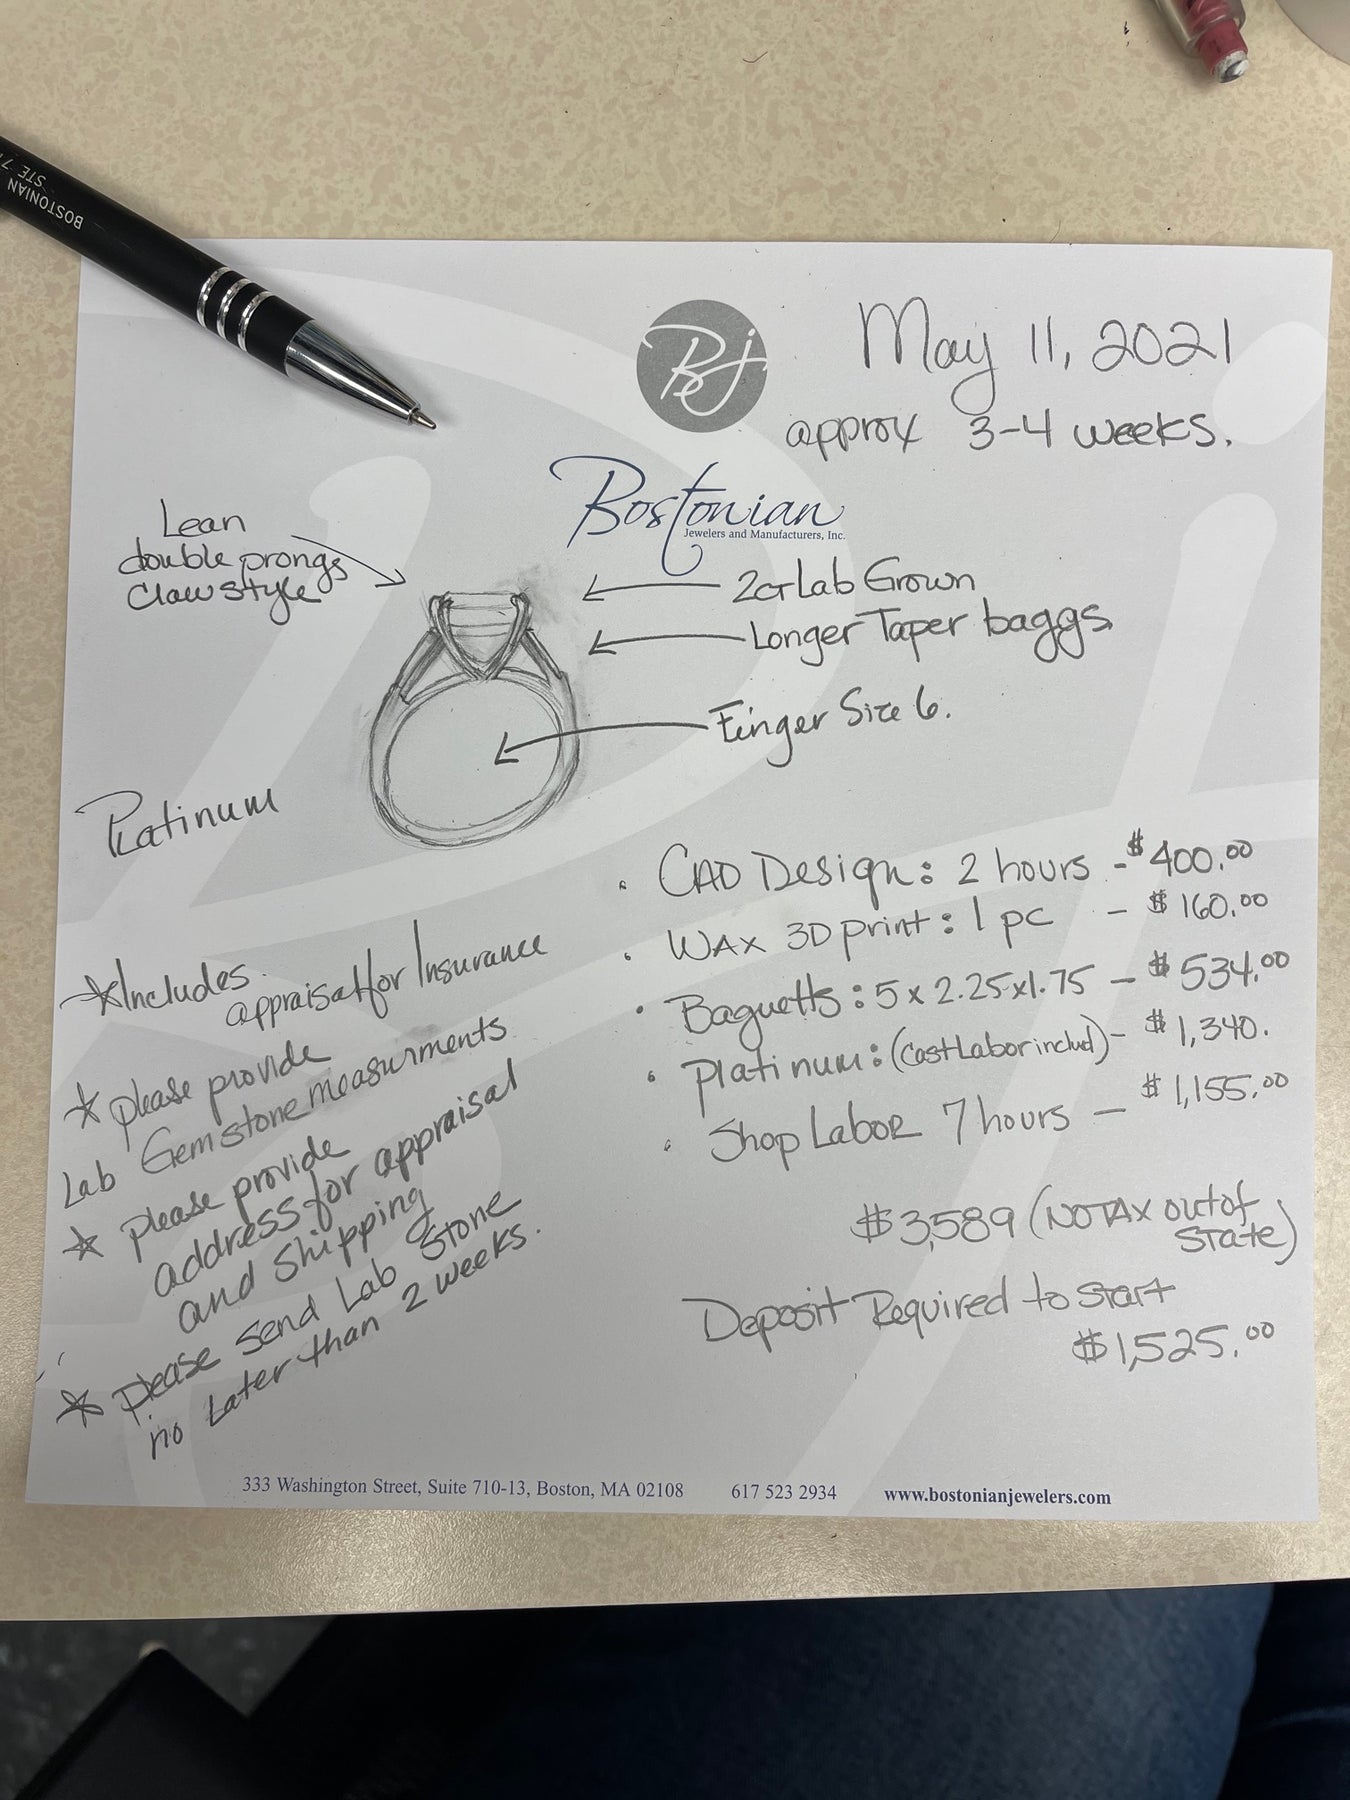 BOSTONIAN
STE 71
BJ
May 11, 2021
approx 3-4 weeks.
Bostonian
Jewelers and Manufacturers, Inc.
Lean
double prongs
Claw style
2ct Lab Grown
Longer Taper baggs.
Finger Size 6.
Platinum
• CAD Design: 2 hours - $400.00
• WAX 3D print: 1 pc - $160.00
• Baguetts: 5 x 2.25 x 1.75 - $534.00
• Platinum: (Cast Labor includ) - $1,340.
• Shop Labor 7 hours - $1,155.00
$3,589 (NO TAX out of
State)
Deposit Required to start
$1,525.00
*Includes
appraisal for Insurance
* please provide
Lab Gemstone measurments
* please provide
address for appraisal
and shipping
* please send Lab Stone
no later than 2 weeks.
333 Washington Street, Suite 710-13, Boston, MA 02108 617 523 2934 www.bostonianjewelers.com